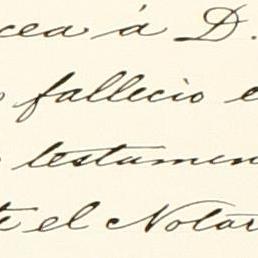 cea á D.
fallecio e
testamen
te el Notar